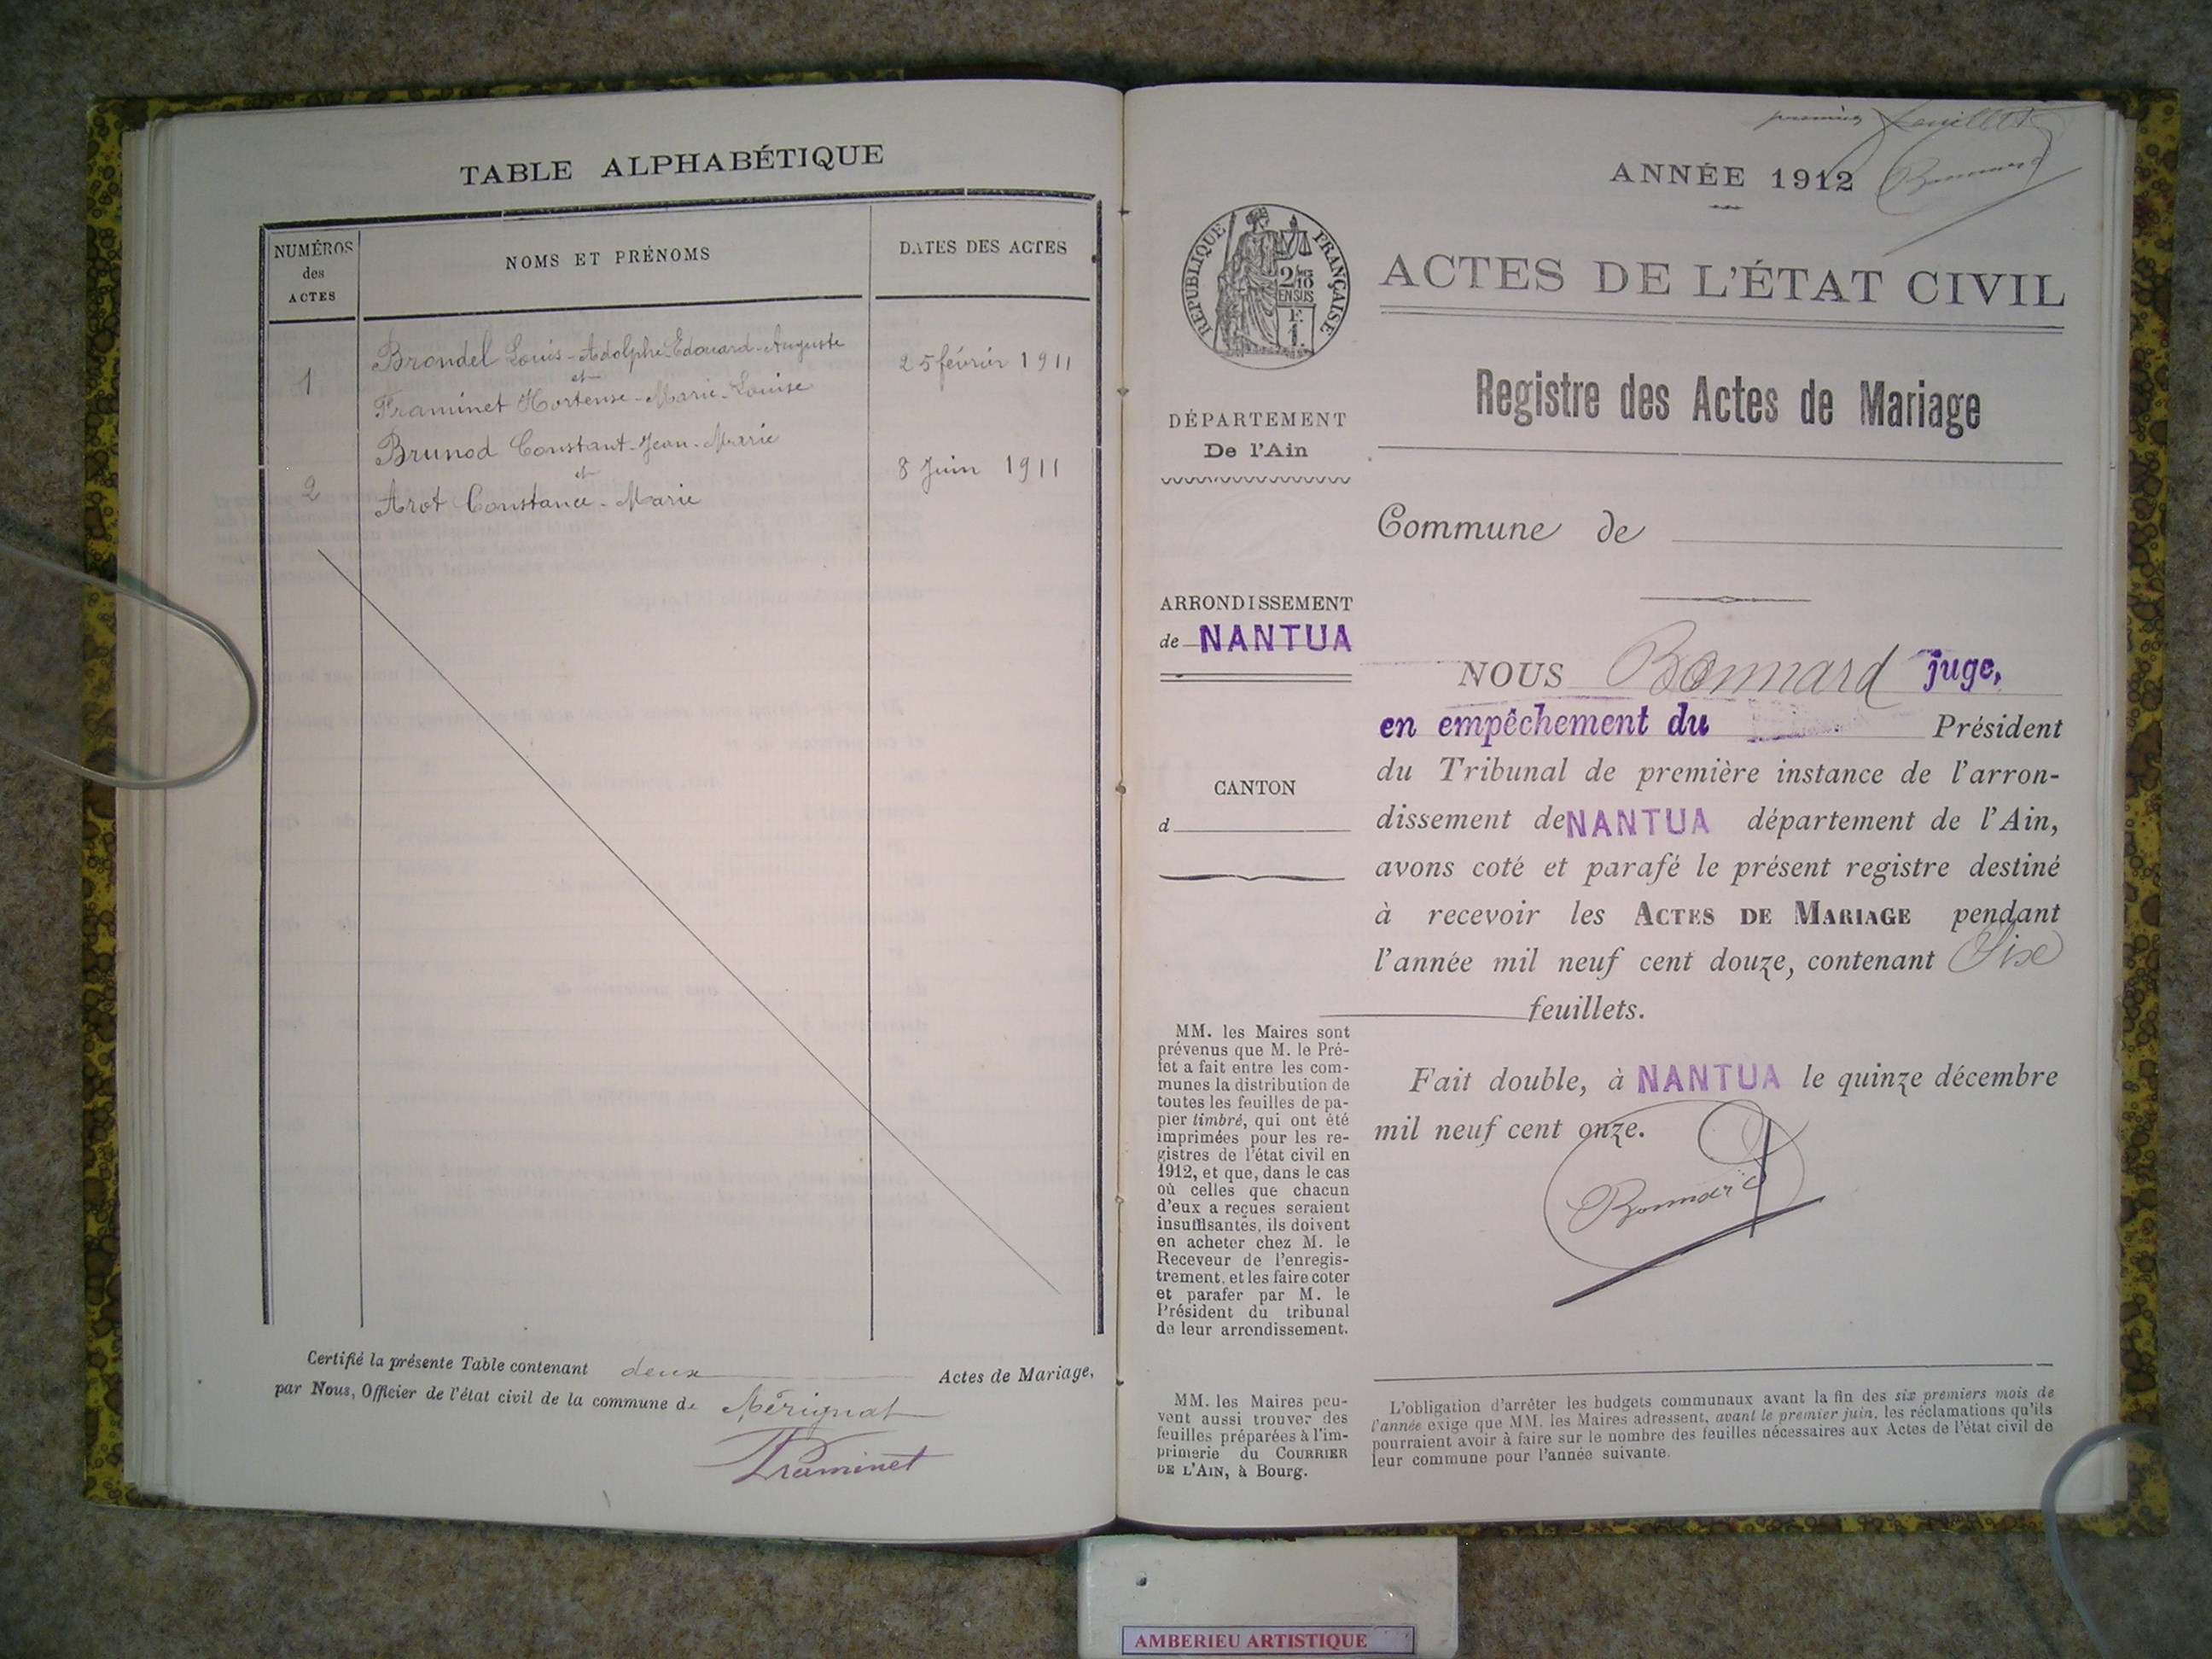 TABLE ALPHABÉTIQUE
NUMÉROS
des
ACTES
NOMS ET PRÉNOMS
DATES DES ACTES
1
Brondel Louis-Adolphe-Edouard-Auguste
et
Framinet Hortense-Marie-Louise
25 février 1911
2
Brunod Constant-Jean-Marie
et
Arot Constance-Marie
8 Juin 1911
Certifié la présente Table contenant deux Actes de Mariage,
par Nous, Officier de l'état civil de la commune de Mérignat
Framinet
premier feuillet
Bonnard
ANNÉE 1912
RÉPUBLIQUE FRANÇAISE
ACTES DE L'ÉTAT CIVIL
Registre des Actes de Mariage
DÉPARTEMENT
De l'Ain
Commune de
ARRONDISSEMENT
de NANTUA
CANTON
d
NOUS Bonnard juge,
en empêchement du Président
du Tribunal de première instance de l'arron-
dissement de NANTUA département de l'Ain,
avons coté et parafé le présent registre destiné
à recevoir les ACTES DE MARIAGE pendant
l'année mil neuf cent douze, contenant Six
feuillets.
Fait double, à NANTUA le quinze décembre
mil neuf cent onze.
Bonnard
MM. les Maires sont
prévenus que M. le Pré-
fet a fait entre les com-
munes la distribution de
toutes les feuilles de pa-
pier timbré, qui ont été
imprimées pour les re-
gistres de l'état civil en
1912, et que, dans le cas
où celles que chacun
d'eux a reçues seraient
insuffisantes, ils doivent
en acheter chez M. le
Receveur de l'enregis-
trement, et les faire coter
et parafer par M. le
Président du tribunal
de leur arrondissement.
MM. les Maires peu-
vent aussi trouver des
feuilles préparées à l'im-
primerie du COURRIER
DE L'AIN, à Bourg.
L'obligation d'arrêter les budgets communaux avant la fin des six premiers mois de
l'année exige que MM. les Maires adressent, avant le premier juin, les réclamations qu'ils
pourraient avoir à faire sur le nombre des feuilles nécessaires aux Actes de l'état civil de
leur commune pour l'année suivante.
AMBERIEU ARTISTIQUE